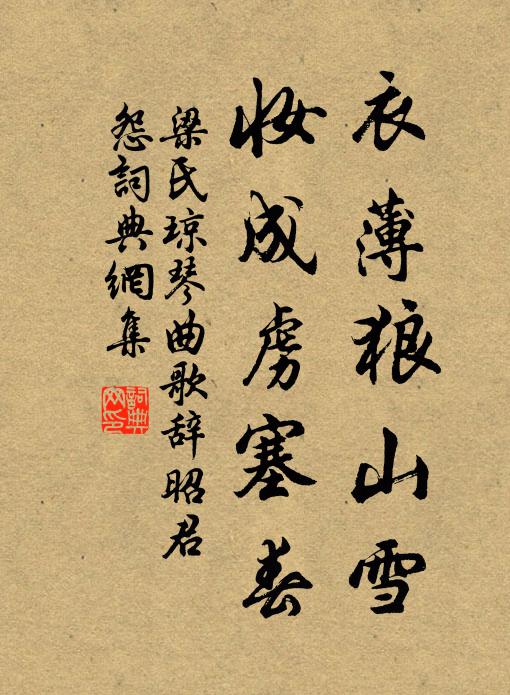 衣薄狼山雪
妆成虏塞春
梁氏琼琴曲歌辞昭君
怨詞典網集
詞典网印